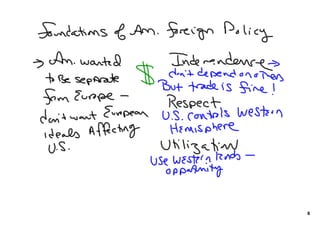 Foundations of Am. Foreign Policy
→ Am. wanted
to Be separate
from Europe –
don't want European
ideals Affecting
U.S.
$
Independence →
don't depend on others
But trade is fine!
Respect
U.S. controls Western
Hemisphere
Utilization
Use western lands –
opportunity
8